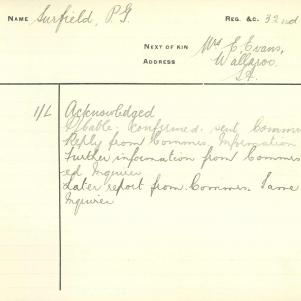 NAME Surfield, P.G. REG. &C. 32nd
NEXT OF KIN Mrs E. Evans,
ADDRESS Wallaroo,
S.A.
1/L Acknowledged
confirmed. sent Commrs
Reply from Commrs. Information
Further information from Commrs
ed Inquirer
Later report from Commrs. Same
Inquirer